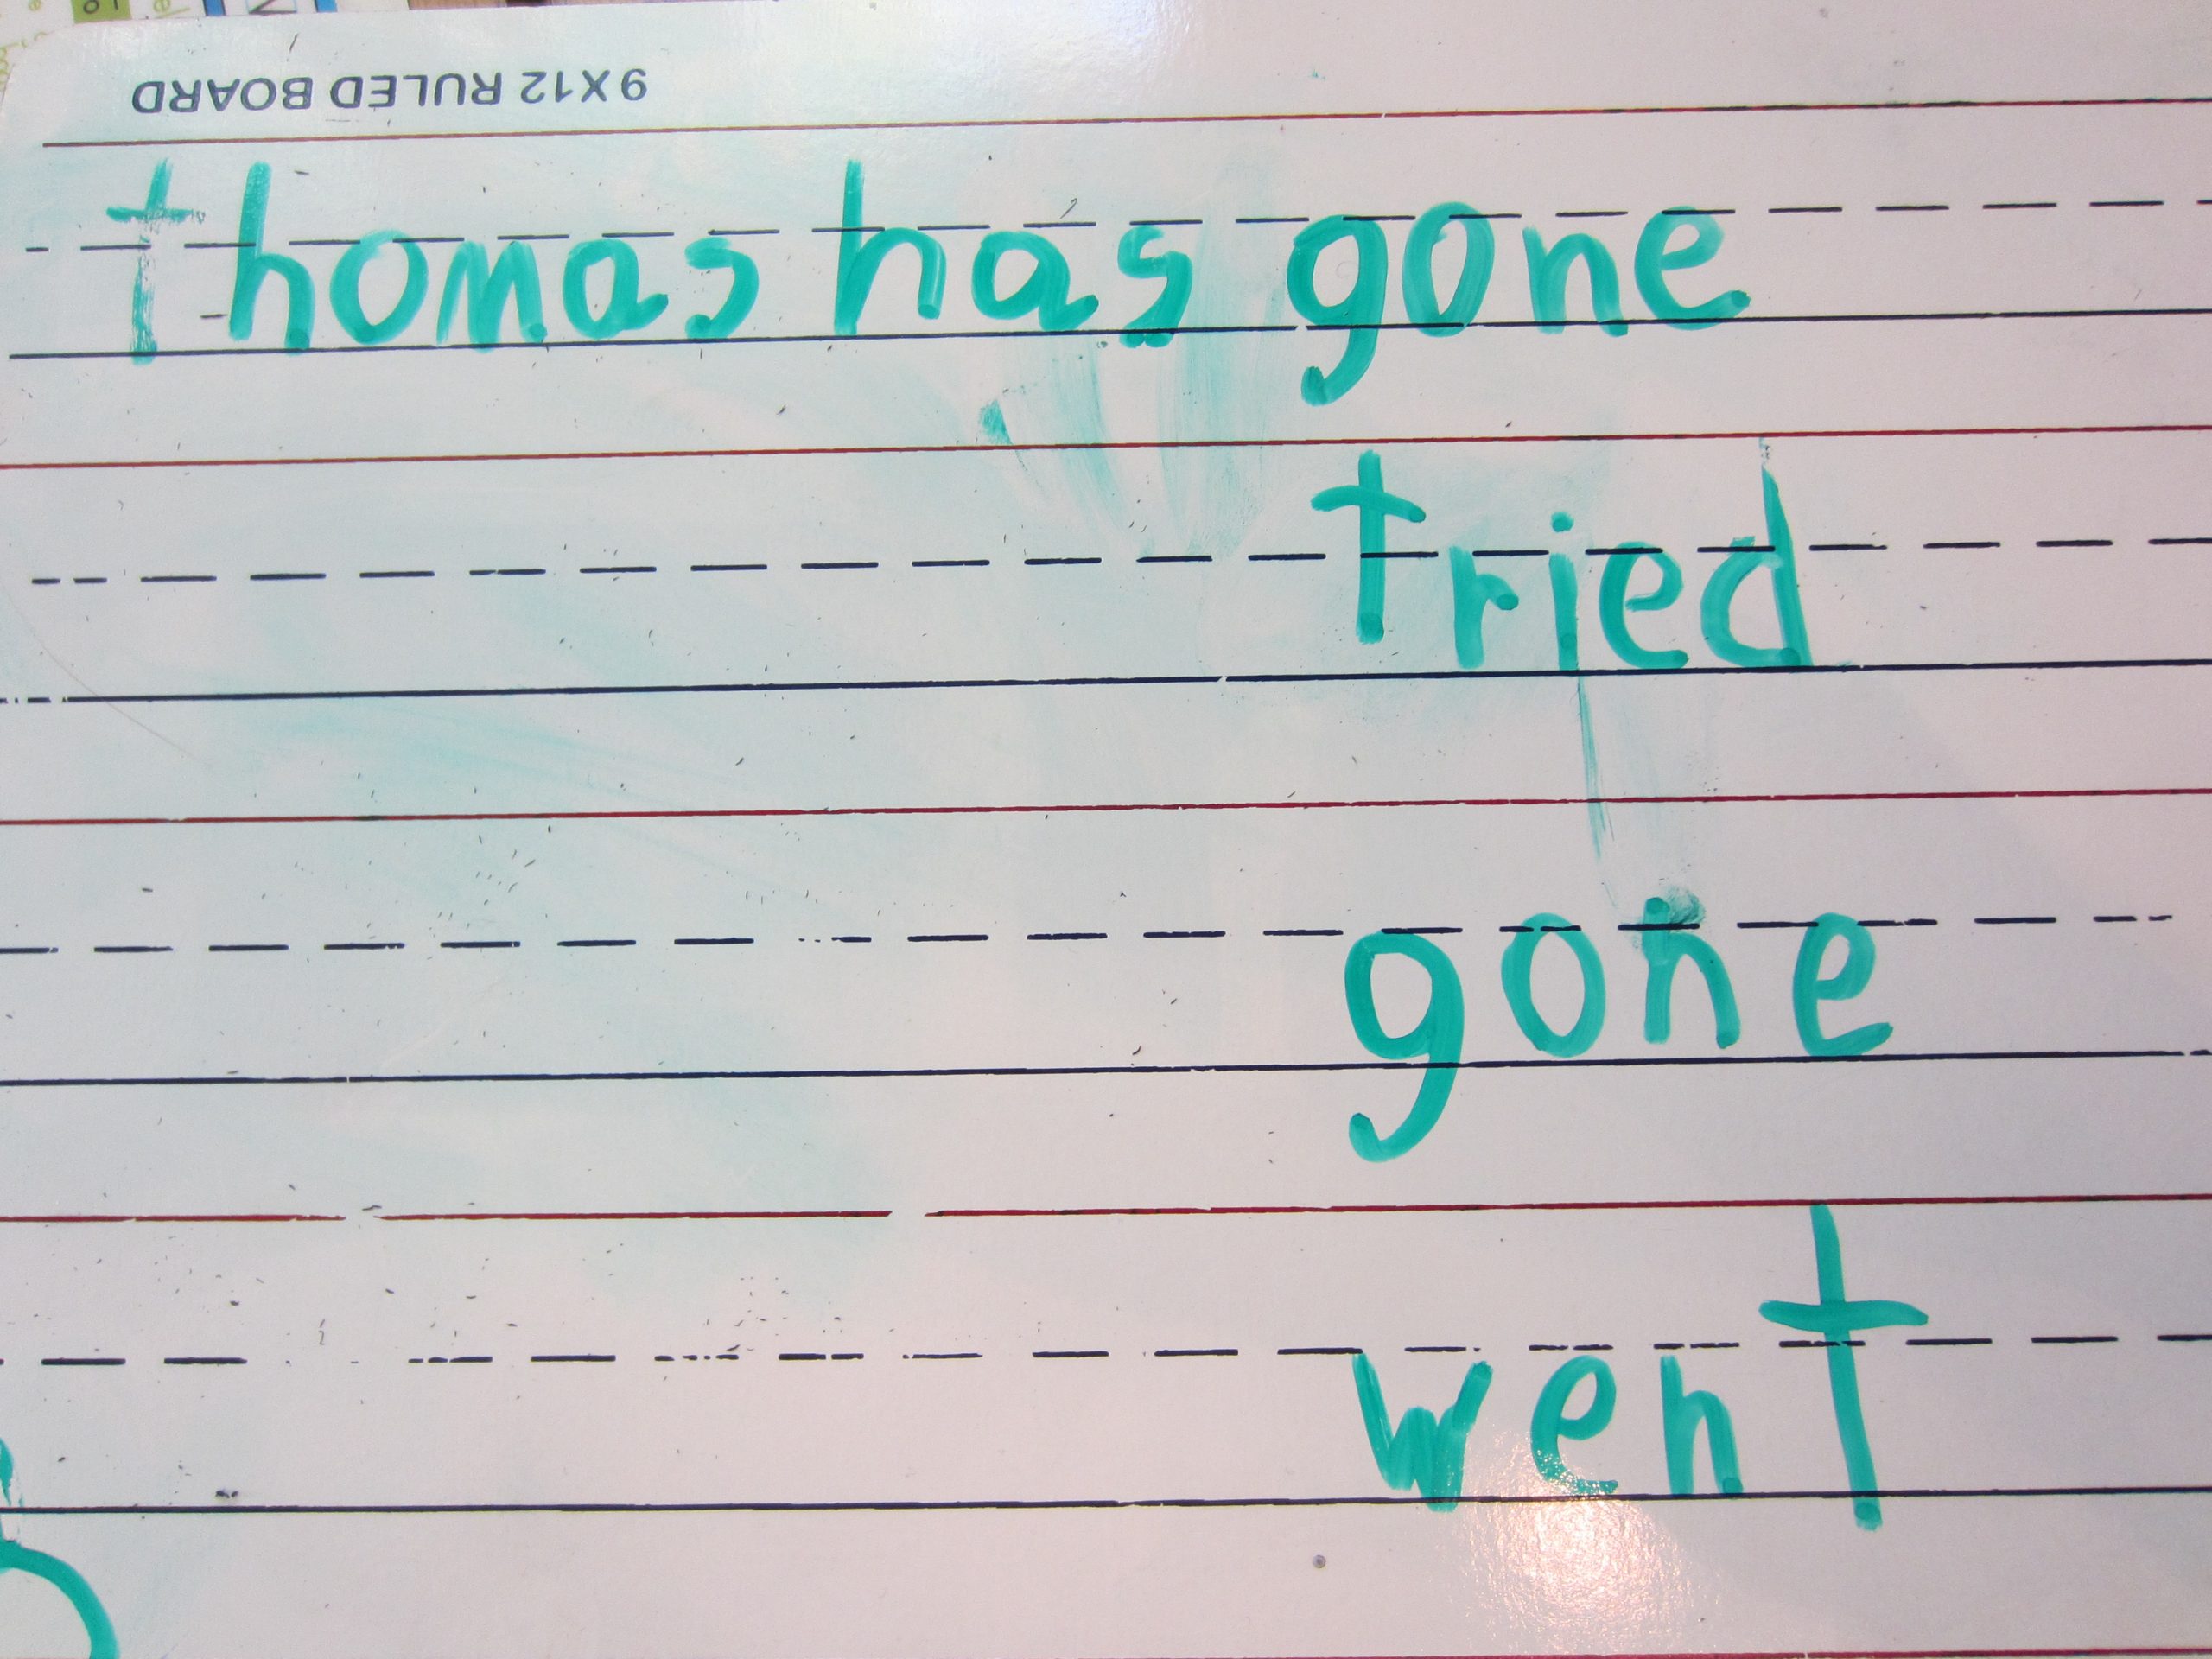 9X12 RULED BOARD
thomas has gone
tried
gone
went